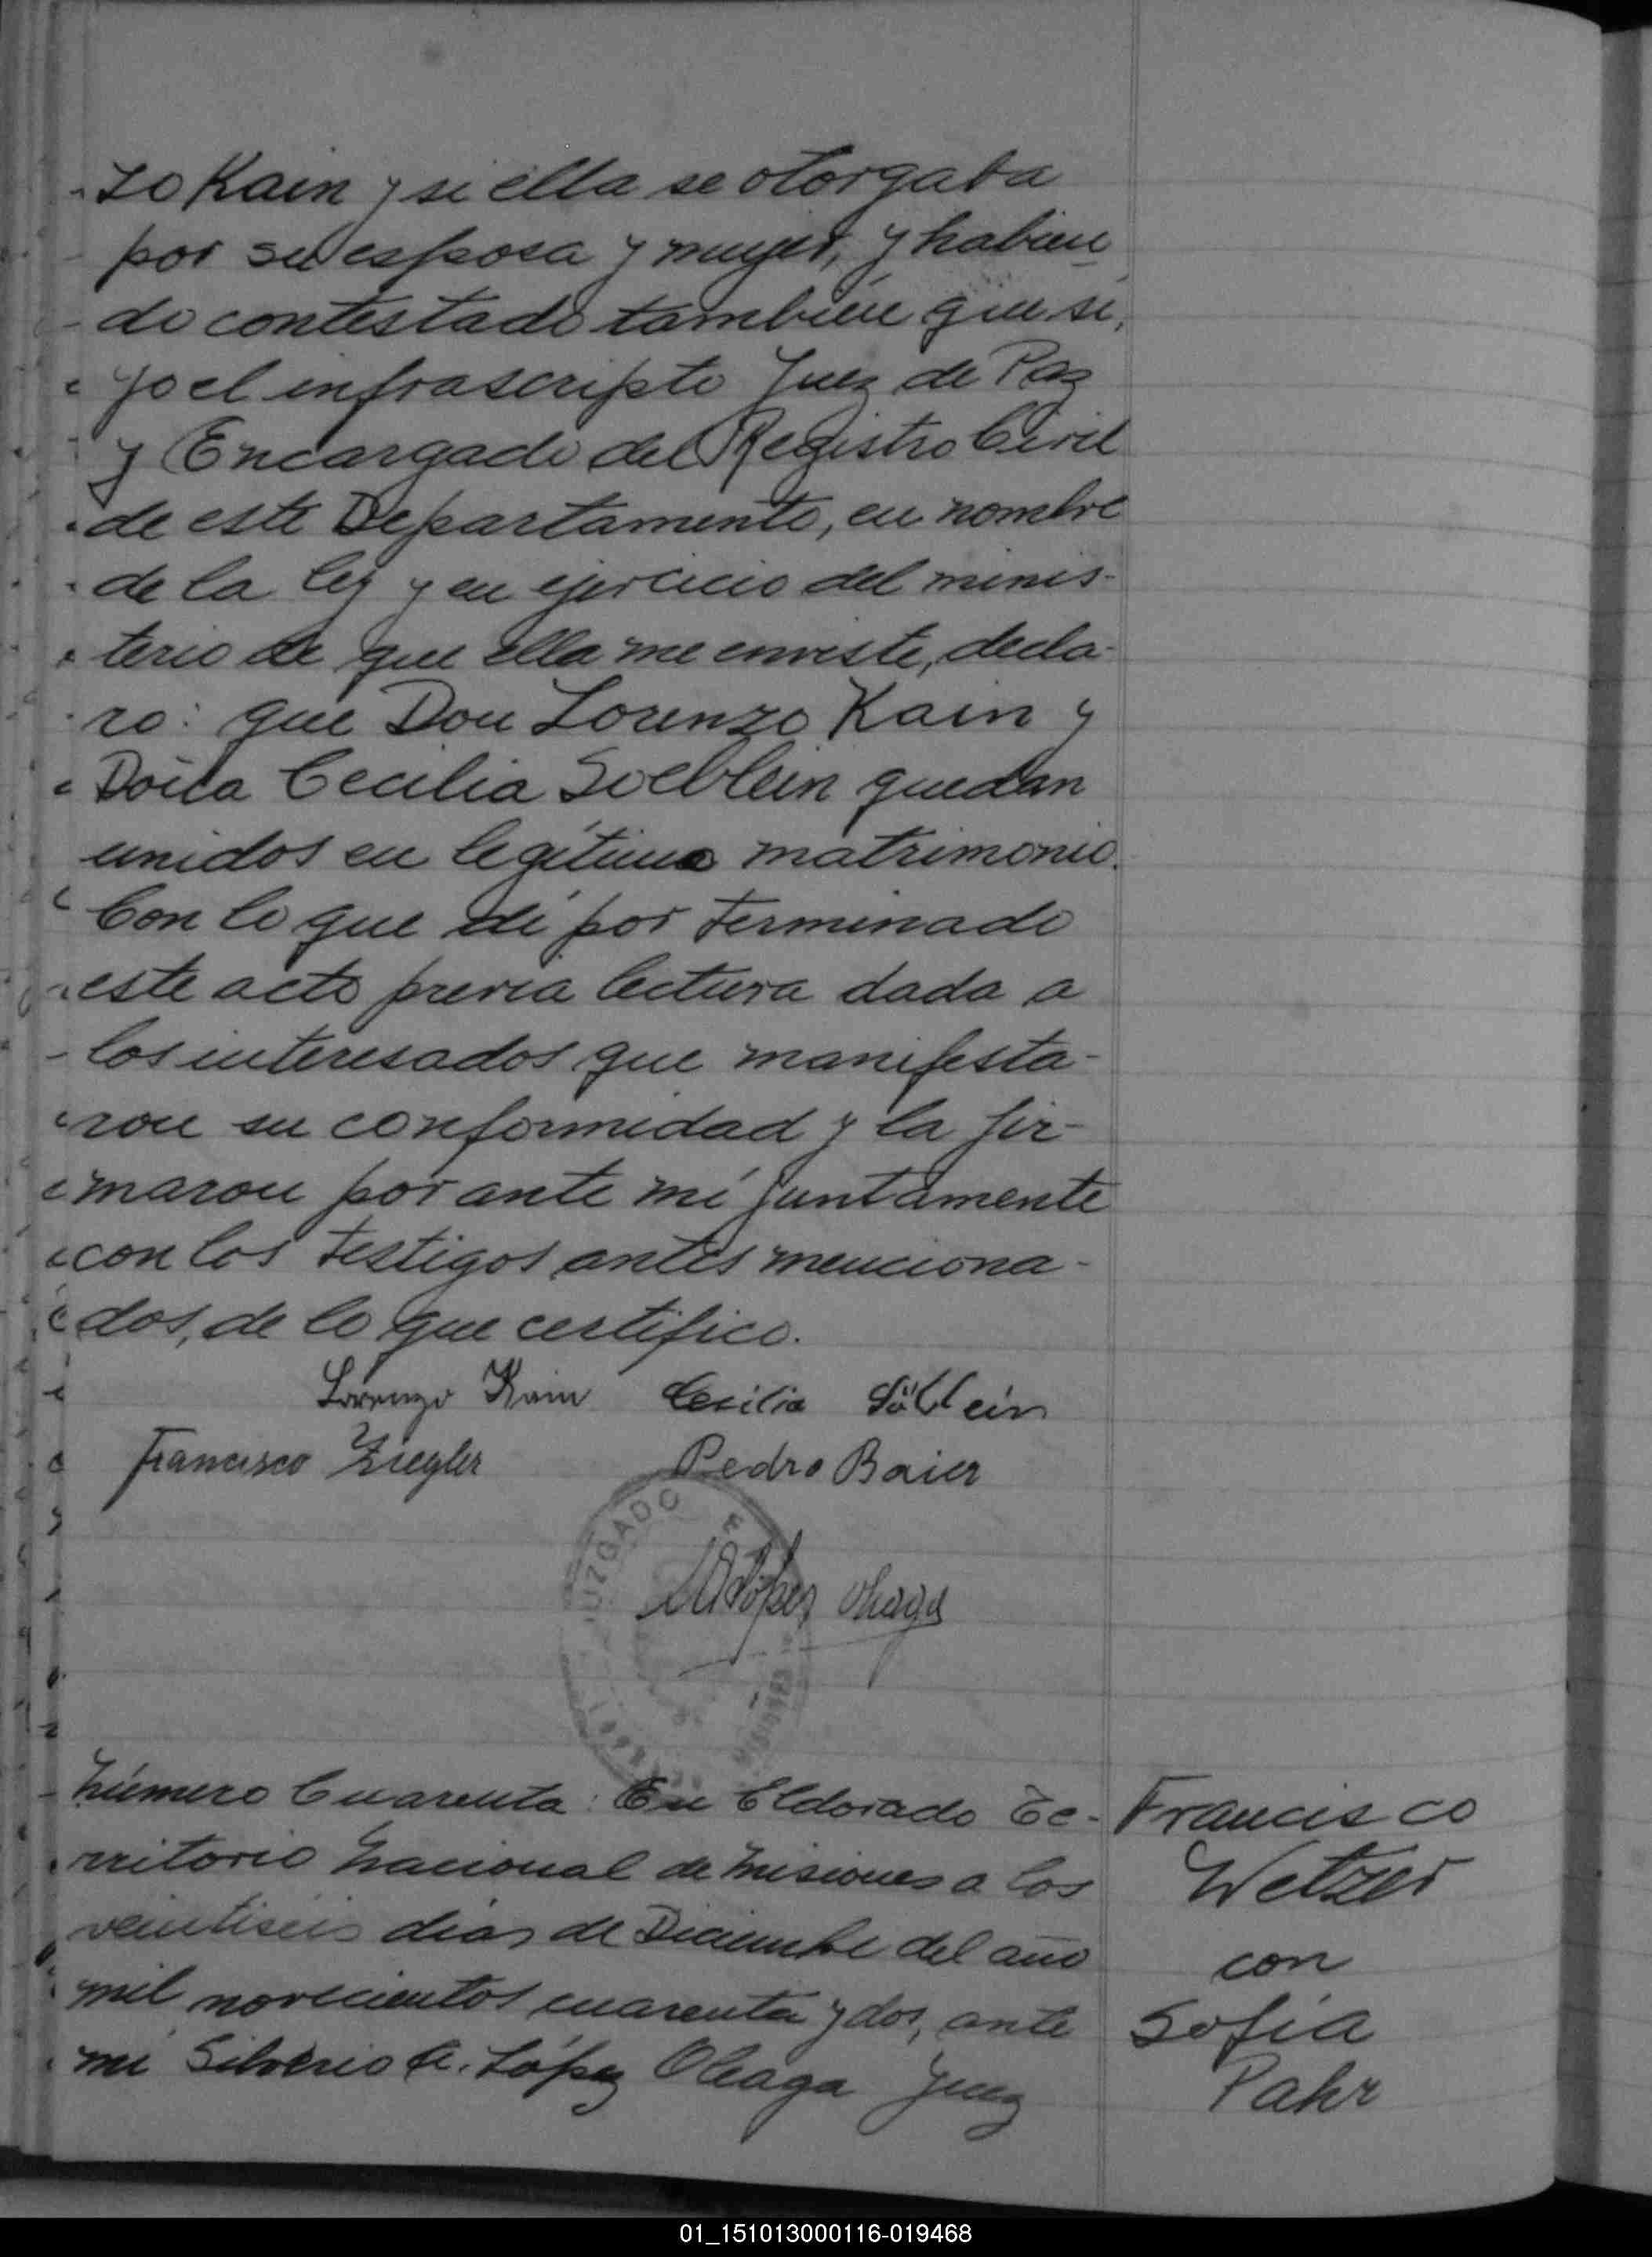 zo Kain y si ella se otorgaba
por su esposa y mujer, y habien
do contestado también que si,
yo el infrascripto Juez de Paz
y Encargado del Registro Civil
de este Departamento, en nombre
de la ley y en ejercicio del minis-
terio de que ella me enviste, decla-
ro: que Don Lorenzo Kain y
Doña Cecilia Soeblein quedan
unidos en legítimo matrimonio.
Con lo que dí por terminado
este acto previa lectura dada a
los interesados que manifesta-
ron su conformidad y la fir-
maron por ante mí juntamente
con los testigos antes menciona-
dos, de lo que certifico.
Lorenzo Kain Cecilia Söblein
Francisco Ziegler Pedro Baier
JUZGADO
López Oleaga
MISIONES
Número Cuarenta: En Eldorado Te-
rritorio Nacional de Misiones a los
veintiseis dias de Diciembre del año
mil novecientos cuarenta y dos, ante
mi Silverio A. López Oleaga Juez
Francisco
Wetzer
con
Sofía
Pahr
01_151013000116-019468